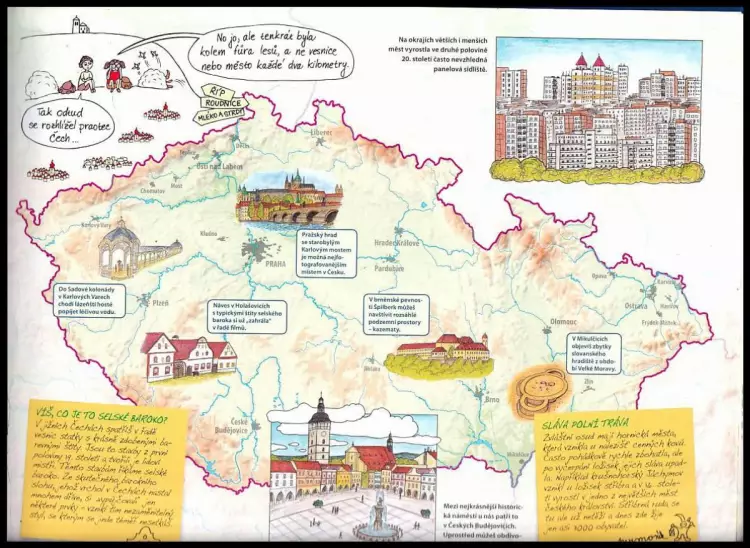 No jo, ale tenkrát byla
kolem fůra lesů, a ne vesnice
nebo město každé dva kilometry.
Tak odtud
se rozhlížel praotec
Čech...
ŘÍP
ROUDNICE
MLÉKO A STRDÍ
Na okrajích větších i menších
měst vyrostla ve druhé polovině
20. století často nevzhledná
panelová sídliště.
Děčín
Liberec
Ústí nad Labem
Most
Chomutov
Karlovy Vary
Kladno
PRAHA
Pražský hrad
se starobylým
Karlovým mostem
je možná nejfo-
tografovanějším
místem v Česku.
Hradec Králové
Pardubice
Do Sadové kolonády
v Karlových Varech
chodí lázeňští hosté
popíjet léčivou vodu.
Plzeň
Náves v Holašovicích
s typickými štíty selského
baroka si už „zahrála“
v řadě filmů.
V brněnské pevnos-
ti Špilberk můžeš
navštívit rozsáhlé
podzemní prostory
– kazematy.
Opava
Karviná
Ostrava
Havířov
Frýdek-Místek
Olomouc
V Mikulčicích
objevili zbytky
slovanského
hradiště z obdo-
bí Velké Moravy.
Jihlava
Zlín
Brno
České
Budějovice
VÍŠ, CO JE TO SELSKÉ BAROKO?
V jižních Čechách spatříš v řadě
vesnic statky s krásně zdobenými ba-
revnými štíty. Jsou to stavby z první
poloviny 19. století a tvořili je lidoví
mistři. Těmto stavbám říkáme selské
baroko. Ze skutečného barokního
slohu, jehož vrchol v Čechách nastal
mnohem dříve, si „vypůjčovali“ jen
některé prvky – vznikl tím nezaměnitelný
styl, se kterým se jinde téměř nesetkáš.
SLÁVA POLNÍ TRÁVA
Zvláštní osud mají hornická města,
která vznikla u nalezišť cenných kovů.
Často pohádkově rychle zbohatla, ale
po vyčerpání ložisek jejich sláva upad-
la. Například krušnohorský Jáchymov
vznikl u ložisek stříbra a v 16. stole-
tí vyrostl v jedno z největších měst
českého království. Stříbrná ruda se
tu ale už netěží a dnes zde žije
jen asi 3000 obyvatel.
Mezi nejkrásnější historic-
ká náměstí u nás patří to
v Českých Budějovicích.
Uprostřed můžeš obdivo-